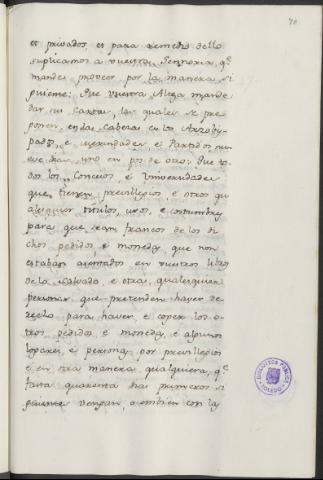 70
et privados, et para remedio dello
suplicamos a vuestra Sennoria, q.e
mande proveer por la manera si
guiente: Que vuestra Alteza mande
dar sus cartas, las quales se pre
gonen, en las cabezas en los Arzobis
pados, e merindades, e Partidos nue
ve dias, uno en pos de otro: Que to
dos los Concejos, e Universidades
que tienen previllegios e otros qu
alesquier titulos, usos, e costumbres
para que sean francos de los di
chos pedidos e monedas, que non
estaban asentados en vuestros libros
de lo salvado, e otras qualesquier
personas que pretenden haver de
recho para haver, e coger los o
tros pedidos e monedas, e algunos
logares, e personas por previllegios
e en otra manera qualquiera, q.e
fasta quarenta dias primeros si
guientes vengan, o embien con las
BIBLIOTECA PUBLICA
TOLEDO